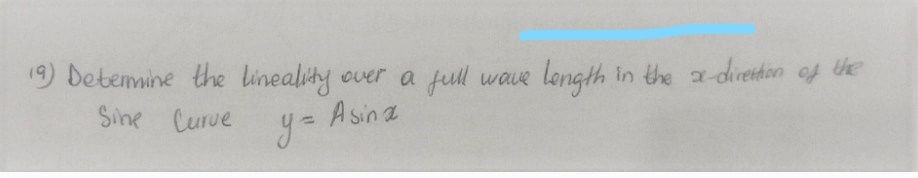 19) Determine the lineality over a full wave length in the x-direction of the
Sine Curve y = A sin x